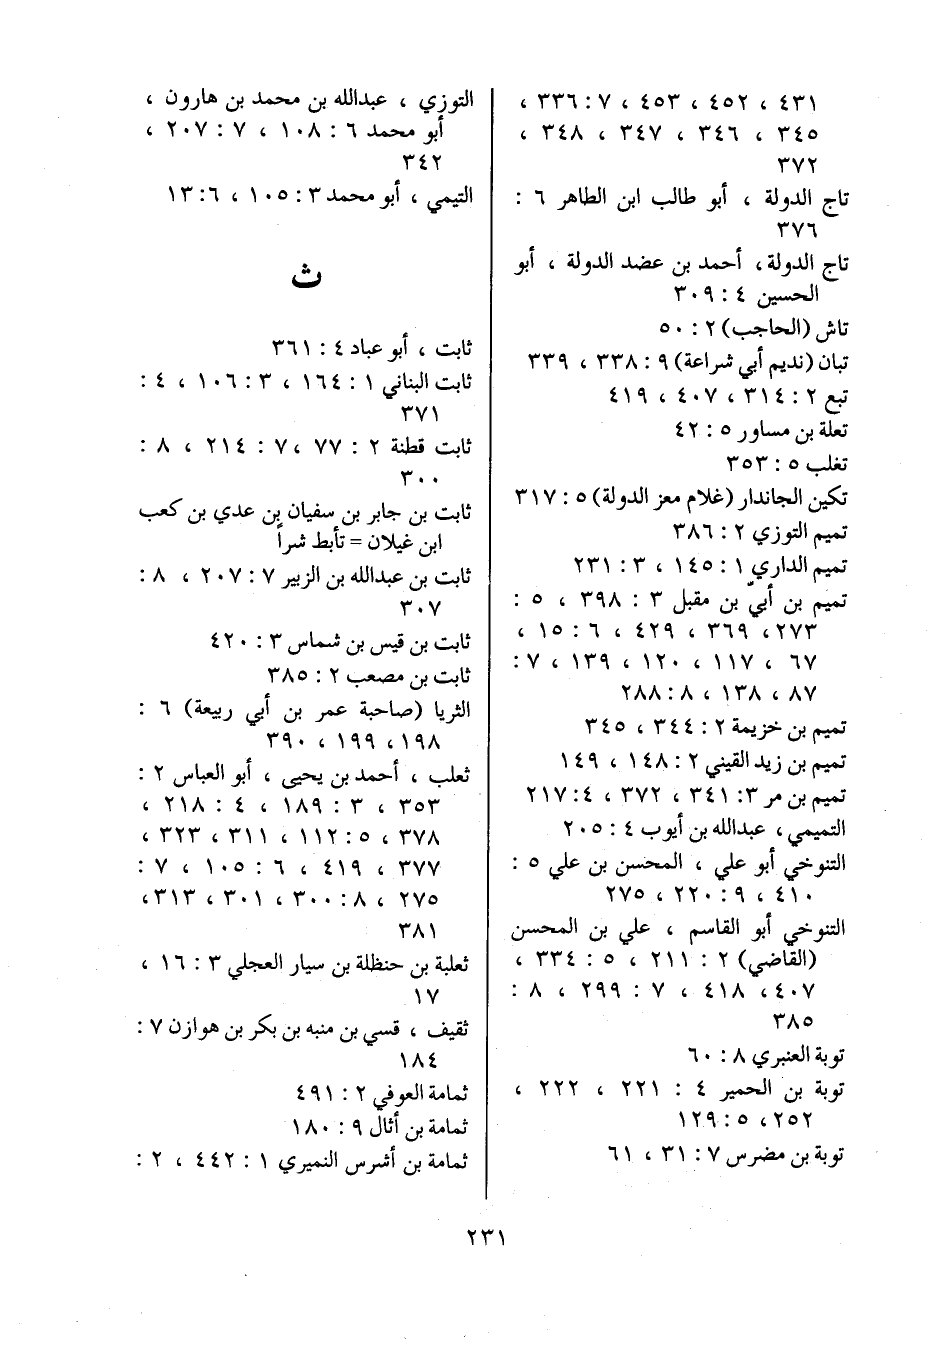 ٤٣١ ، ٤٥٢ ، ٤٥٣ ، ٧ : ٣٣٦ ،
٣٤٥ ، ٣٤٦ ، ٣٤٧ ، ٣٤٨ ،
٣٧٢
تاج الدولة ، أبو طالب ابن الطاهر ٦ :
٣٧٦
تاج الدولة ، أحمد بن عضد الدولة ، أبو
الحسين ٤ : ٣٠٩
تاش (الحاجب) ٢ : ٥٠
تبان (نديم أبي شراعة) ٩ : ٣٣٨ ، ٣٣٩
تبع ٢ : ٣١٤ ، ٤٠٧ ، ٤١٩
تعلة بن مساور ٥ : ٤٢
تغلب ٥ : ٣٥٣
تكين الجاندار (غلام معز الدولة) ٥ : ٣١٧
تميم التوزي ٢ : ٣٨٦
تميم الداري ١ : ١٤٥ ، ٣ : ٢٣١
تميم بن أبيّ بن مقبل ٣ : ٣٩٨ ، ٥ :
٢٧٣ ، ٣٦٩ ، ٤٢٩ ، ٦ : ١٥ ،
٦٧ ، ١١٧ ، ١٢٠ ، ١٣٩ ، ٧ :
٨٧ ، ١٣٨ ، ٨ : ٢٨٨
تميم بن خزيمة ٢ : ٣٤٤ ، ٣٤٥
تميم بن زيد القيني ٢ : ١٤٨ ، ١٤٩
تميم بن مر ٣ : ٣٤١ ، ٣٧٢ ، ٤ : ٢١٧
التميمي ، عبدالله بن أيوب ٤ : ٢٠٥
التنوخي أبو علي ، المحسن بن علي ٥ :
٤١٠ ، ٩ : ٢٢٠ ، ٢٧٥
التنوخي أبو القاسم ، علي بن المحسن
(القاضي) ٢ : ٢١١ ، ٥ : ٣٣٤ ،
٤٠٧ ، ٤١٨ ، ٧ : ٢٩٩ ، ٨ :
٣٨٥
توبة العنبري ٨ : ٦٠
توبة بن الحمير ٤ : ٢٢١ ، ٢٢٢ ،
٢٥٢ ، ٥ : ١٢٩
توبة بن مضرس ٧ : ٣١ ، ٦١
التوزي ، عبدالله بن محمد بن هارون ،
أبو محمد ٦ : ١٠٨ ، ٧ : ٢٠٧ ،
٣٤٢
التيمي ، أبو محمد ٣ : ١٠٥ ، ٦ : ١٣
ث
ثابت ، أبو عباد ٤ : ٣٦١
ثابت البناني ١ : ١٦٤ ، ٣ : ١٠٦ ، ٤ :
٣٧١
ثابت قطنة ٢ : ٧٧ ، ٧ : ٢١٤ ، ٨ :
٣٠٠
ثابت بن جابر بن سفيان بن عدي بن كعب
ابن غيلان = تأبط شراً
ثابت بن عبدالله بن الزبير ٧ : ٢٠٧ ، ٨ :
٣٠٧
ثابت بن قيس بن شماس ٣ : ٤٢٠
ثابت بن مصعب ٢ : ٣٨٥
الثريا (صاحبة عمر بن أبي ربيعة) ٦ :
١٩٨ ، ١٩٩ ، ٣٩٠
ثعلب ، أحمد بن يحيى ، أبو العباس ٢ :
٣٥٣ ، ٣ : ١٨٩ ، ٤ : ٢١٨ ،
٣٧٨ ، ٥ : ١١٢ ، ٣١١ ، ٣٢٣ ،
٣٧٧ ، ٤١٩ ، ٦ : ١٠٥ ، ٧ :
٢٧٥ ، ٨ : ٣٠٠ ، ٣٠١ ، ٣١٣ ،
٣٨١
ثعلبة بن حنظلة بن سيار العجلي ٣ : ١٦ ،
١٧
ثقيف ، قسي بن منبه بن بكر بن هوازن ٧ :
١٨٤
ثمامة العوفي ٢ : ٤٩١
ثمامة بن أثال ٩ : ١٨٠
ثمامة بن أشرس النميري ١ : ٤٤٢ ، ٢ :
٢٣١